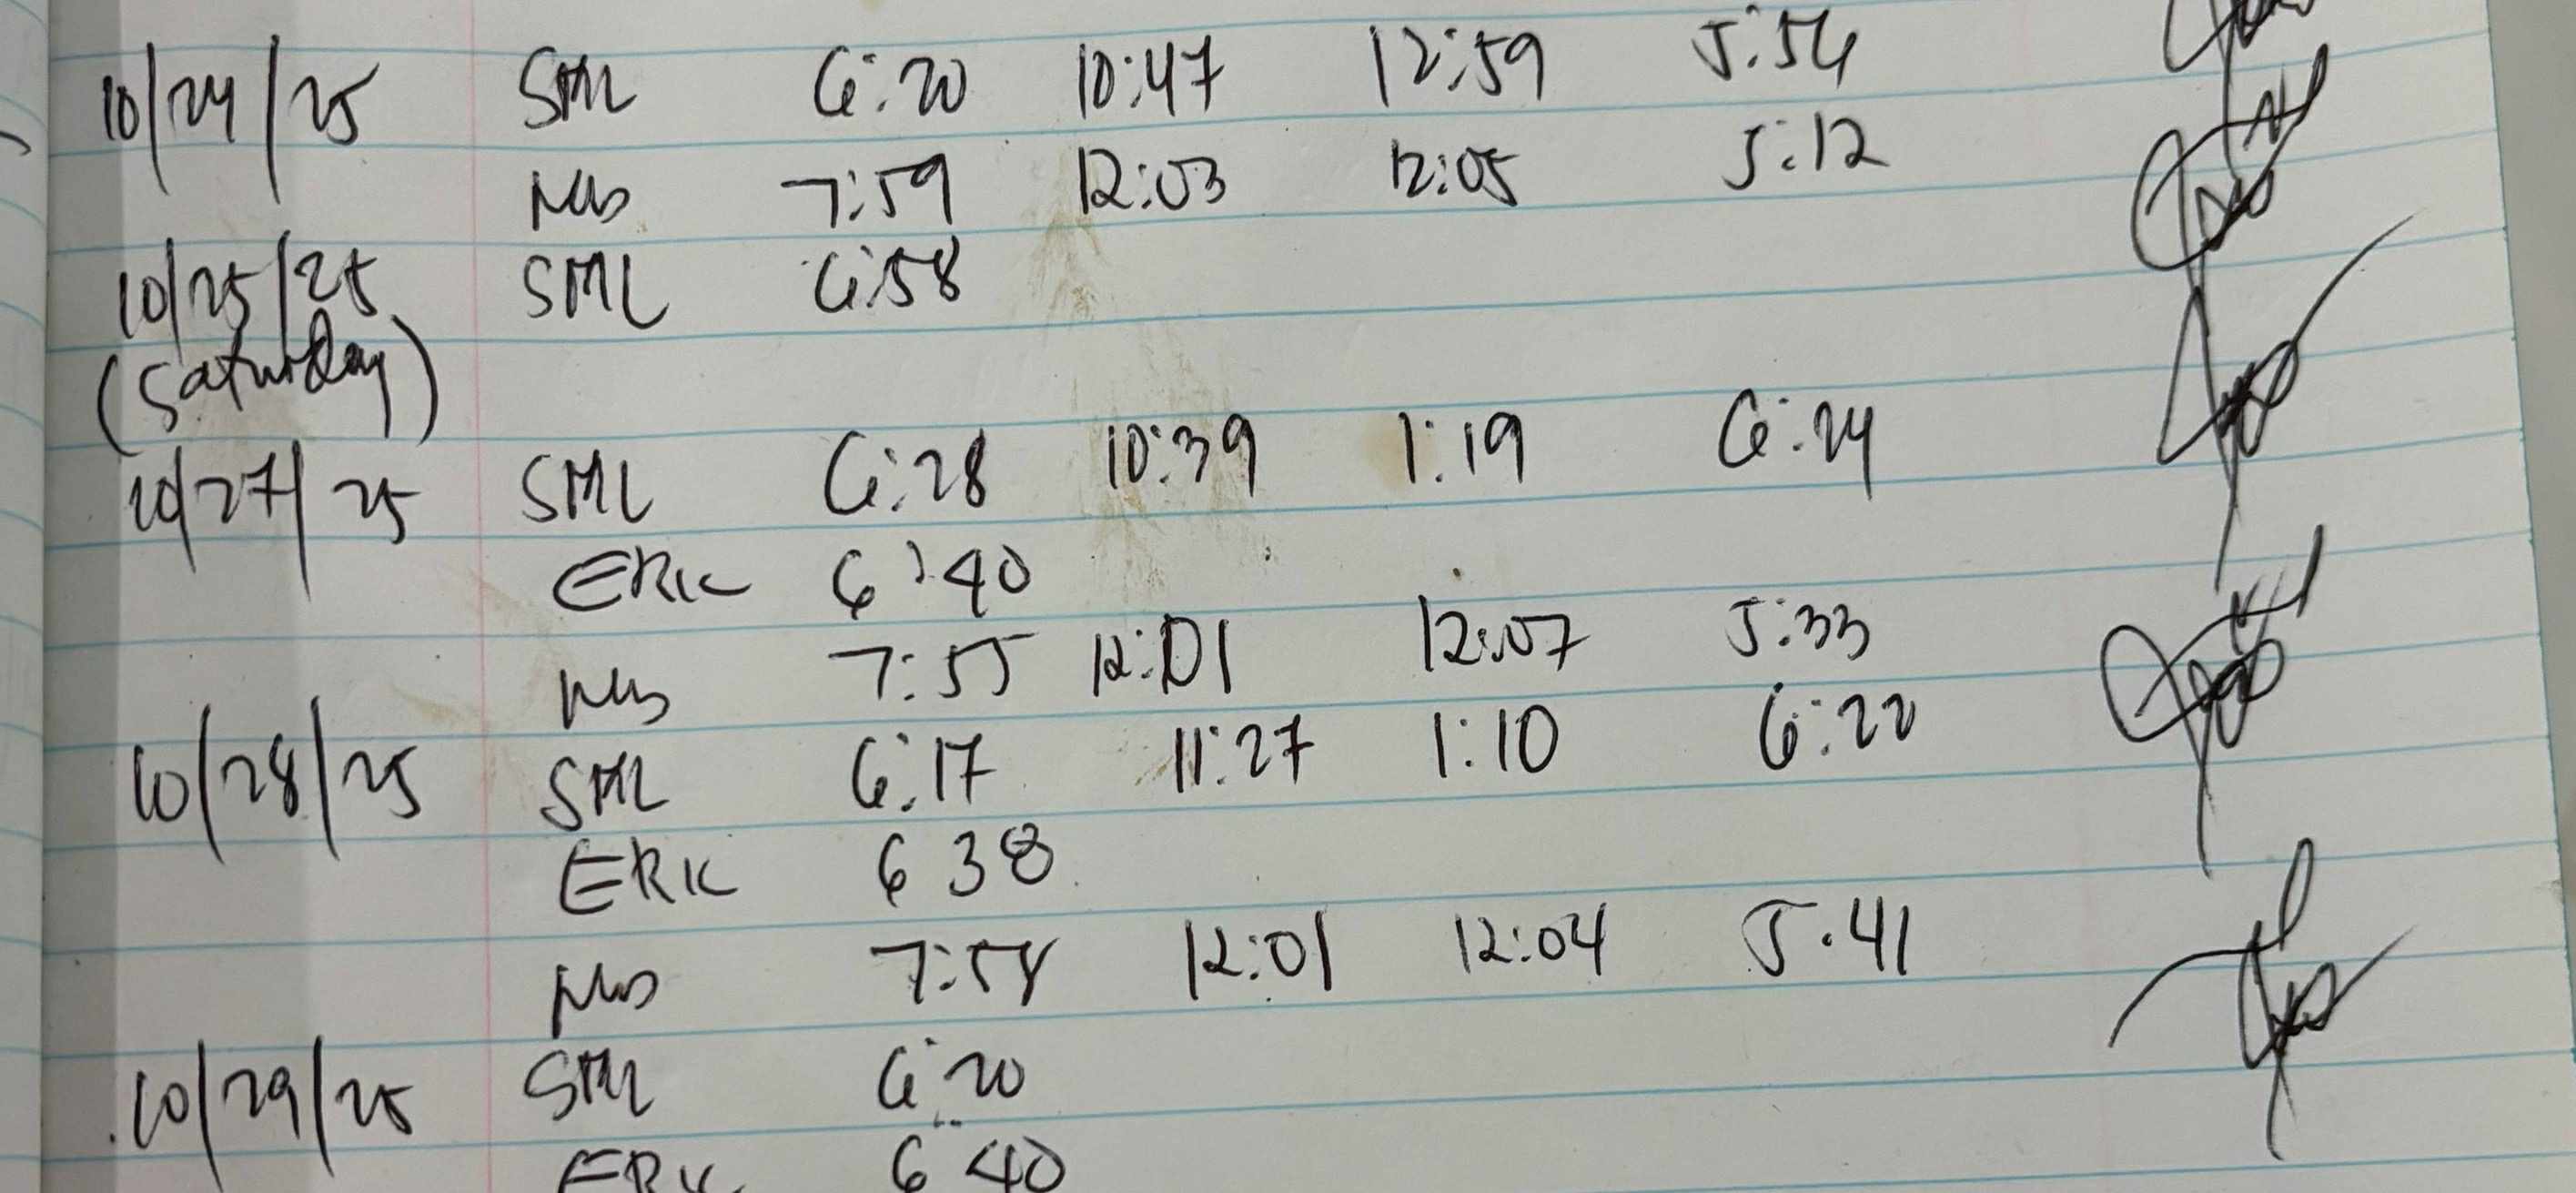 10/24/25 SML 6:20 10:47 12:59 5:56
7:59 12:03 12:05 5:12
10/25/25 SML 6:58
(Saturday)
10/27/25 SML 6:28 10:39 1:19 6:24
ERIC 6:40
7:55 12:01 12:07 5:33
10/28/25 SML 6:17 11:27 1:10 6:22
ERIC 6 38
7:58 12:01 12:04 5.41
10/29/25 SML 6:20
ERIC 6 40